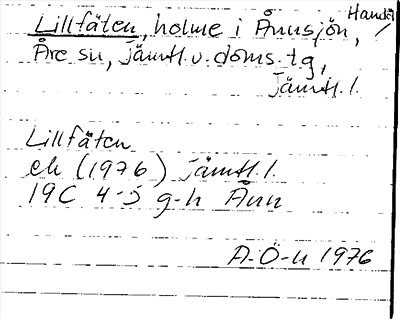 Handöl
Lillfäten, holme i Ånnsjön,
Åre sn, Jämtl. v. doms. tg,
Jämtl. l.
Lillfäten
ek (1976) Jämtl. l.
19C 4-5 g-h Ånn
A-Ö-n 1976